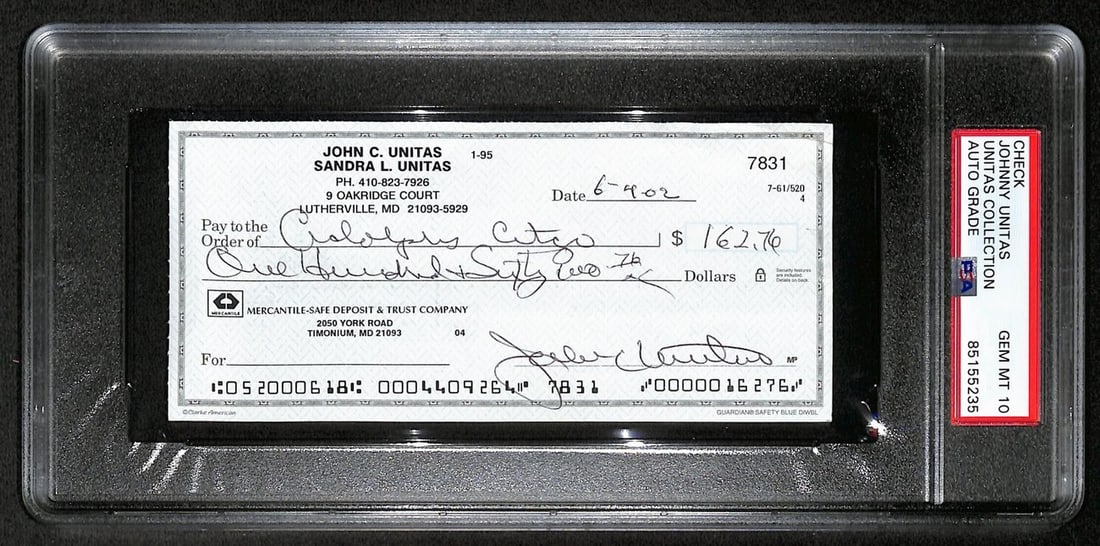 JOHN C. UNITAS 1-95
SANDRA L. UNITAS
PH. 410-823-7926
9 OAKRIDGE COURT
LUTHERVILLE, MD 21093-5929
7831
Date 6-4-02
7-61/520
4
Pay to the
Order of Citgo $ 162.76
One Hundred & Sixty Two 76 Dollars
Security features
are included.
Details on back.
MERCANTILE
MERCANTILE-SAFE DEPOSIT & TRUST COMPANY
2050 YORK ROAD
TIMONIUM, MD 21093 04
For John Unitas MP
⑆052000618⑆ 0004409264⑈ 7831 ⑈0000016276⑈
©Clarke American GUARDIAN® SAFETY BLUE DWBL
CHECK
JOHNNY UNITAS
UNITAS COLLECTION GEM MT 10
AUTO GRADE 85155235
PSA